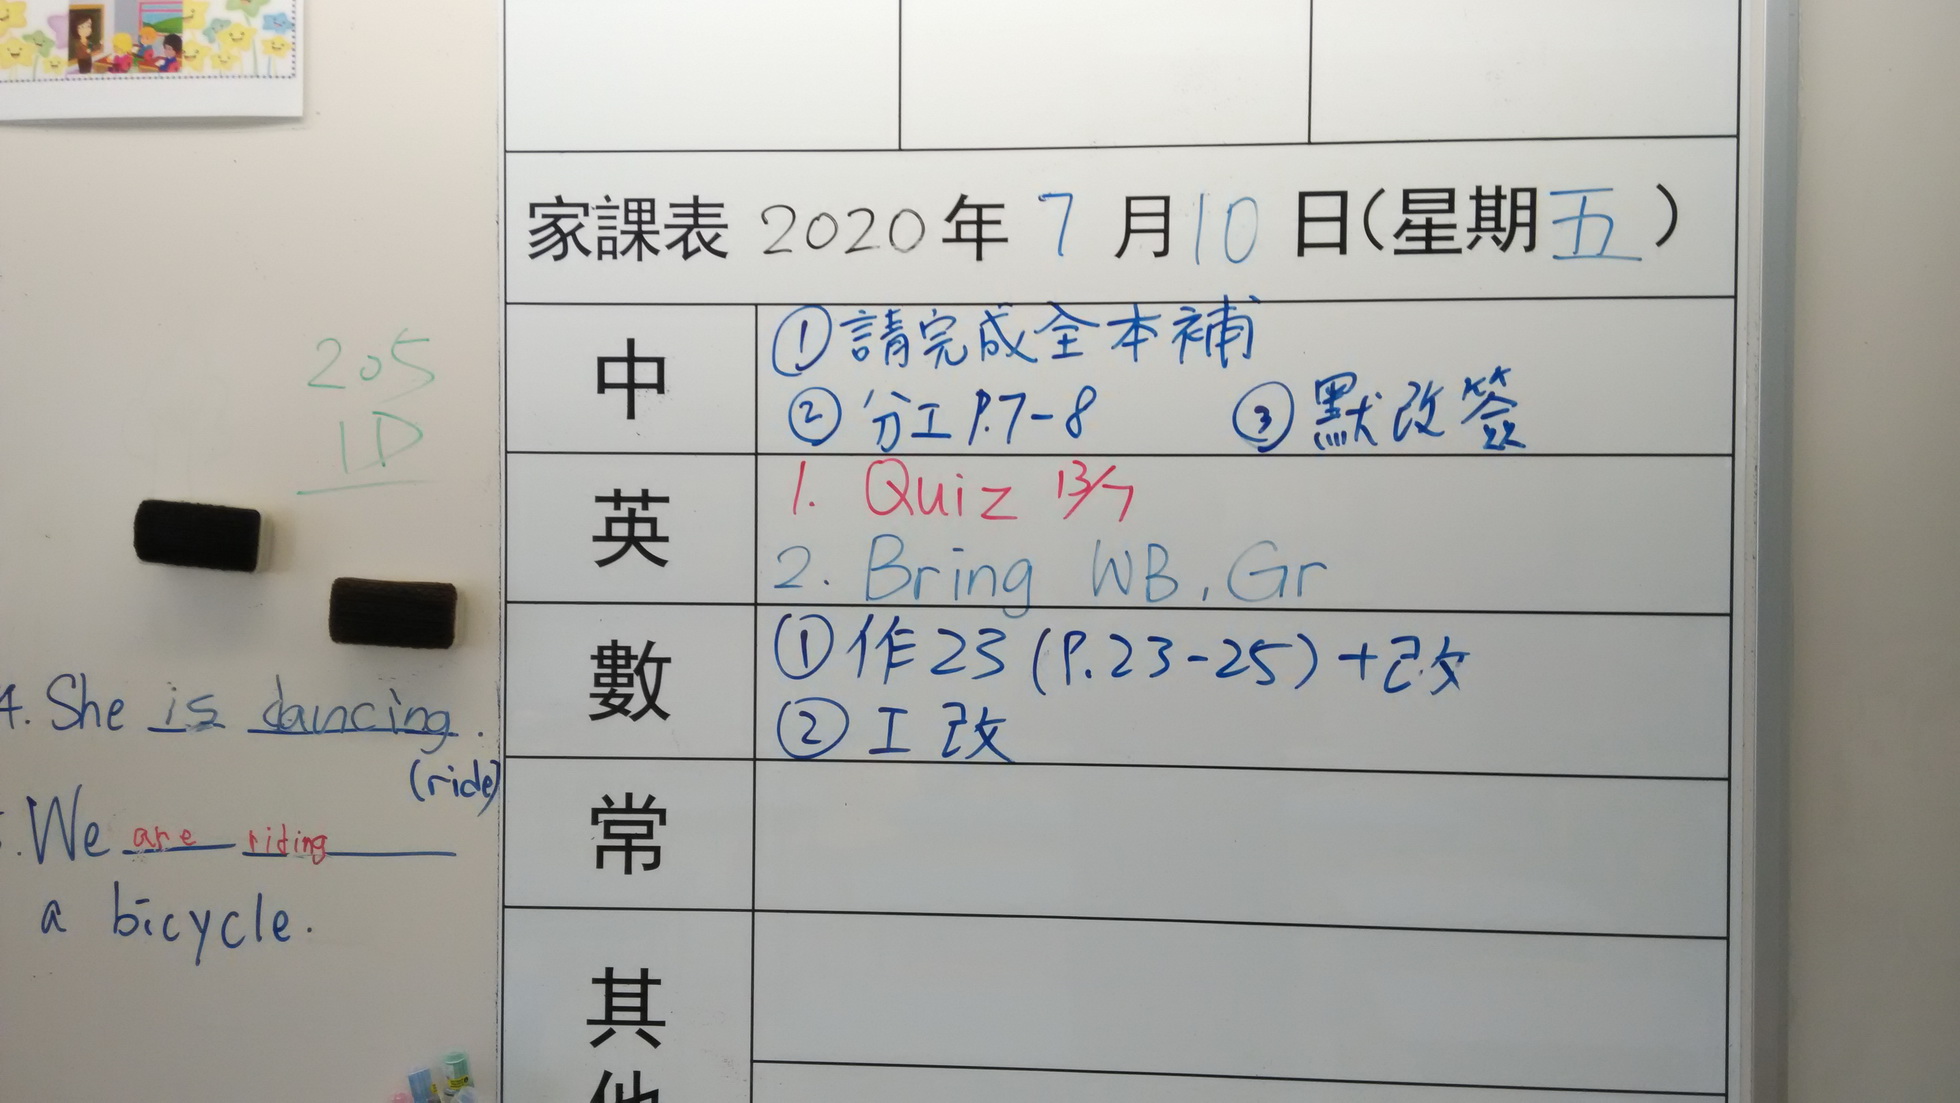 205
1D
4. She is dancing.
(ride)
We are riding
a bicycle.
家課表 2020年 7 月 10 日(星期五)
中
①請完成全本補
②分工 P.7-8 ③默改簽
英
1. Quiz 13/7
2. Bring WB, Gr
數
①作23 (P.23-25)+改
②工改
常
其他